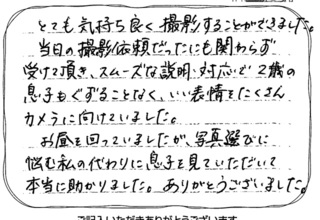 とても気持ち良く撮影することができました。
当日の撮影依頼だったにも関わらず
受けて頂き、スムーズな説明・対応で2歳の
息子もぐずることなく、いい表情をたくさん
カメラに向けていました。
お昼を回っていましたが、写真選びに
悩む私の代わりに息子を見ていただいて
本当に助かりました。ありがとうございました。
ご記入いただきありがとうございます